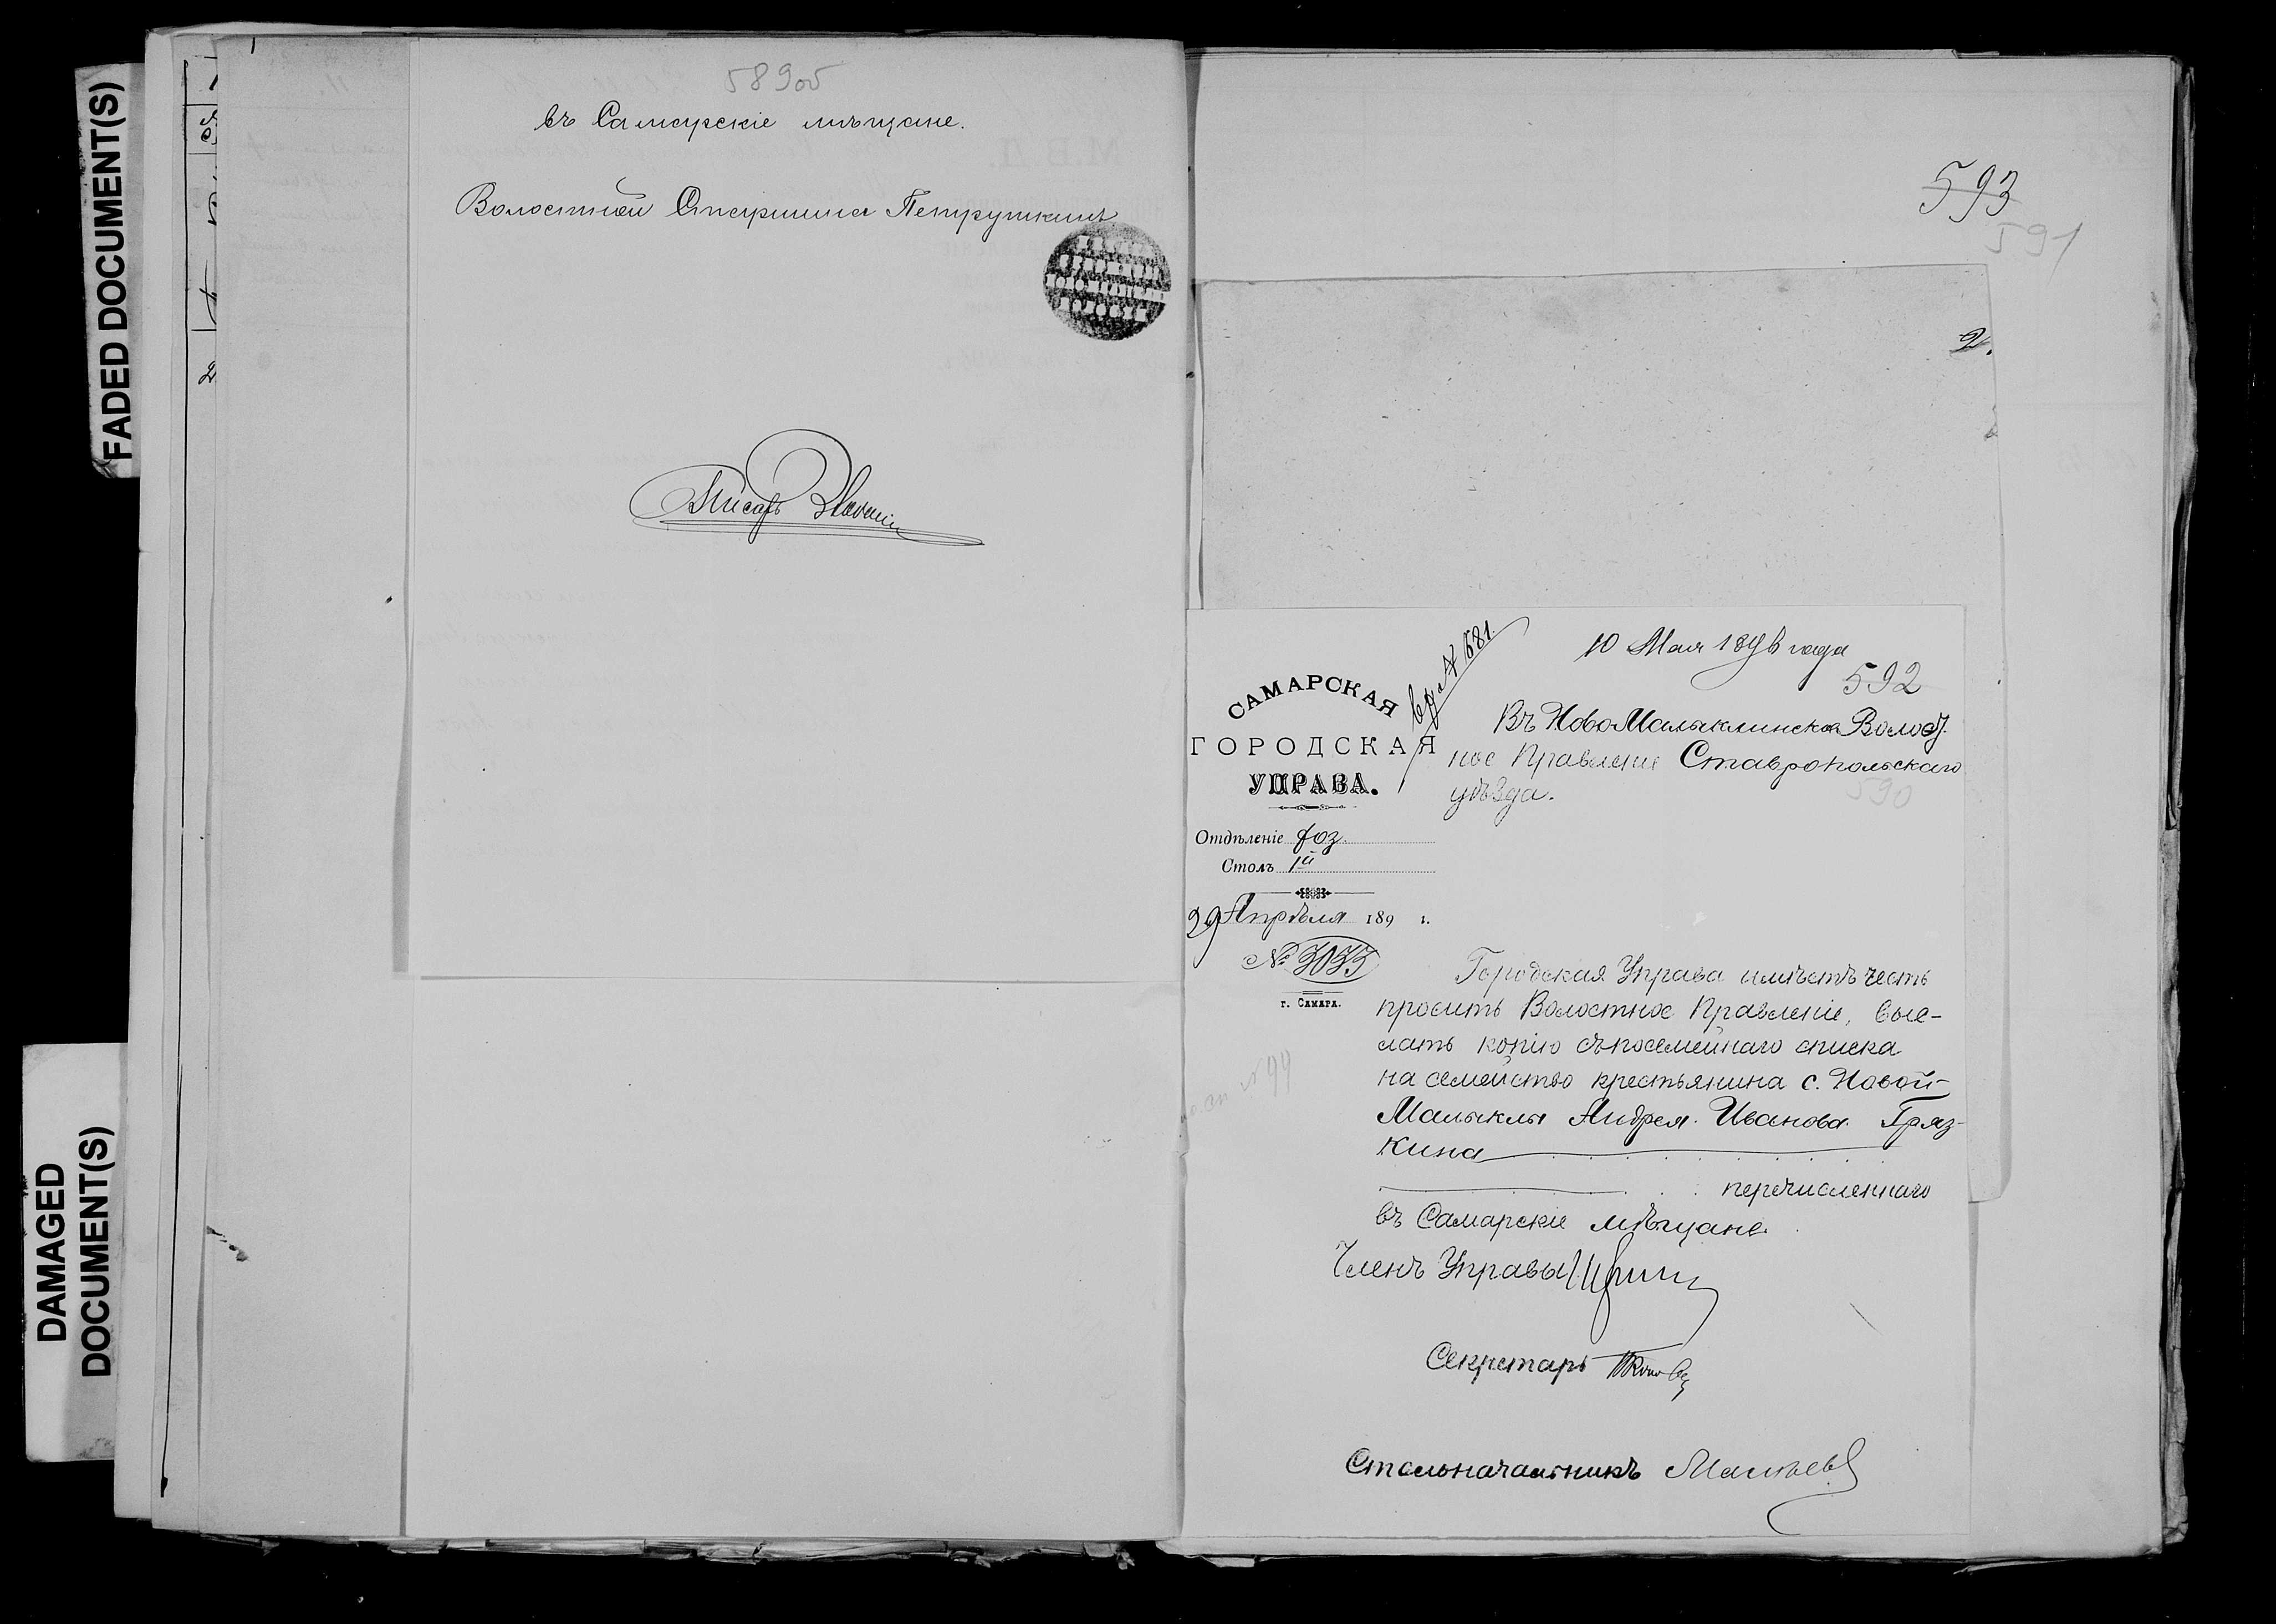 FADED DOCUMENT(S)
DAMAGED
DOCUMENT(S)
589об
въ Самарскіе мѣщане.
Волостной Старшина Петрушкинъ
Писарь
593
591
2.
10 Мая 1896 года
592
вх № 681.
САМАРСКАЯ
ГОРОДСКАЯ
УПРАВА.
Въ Ново Малыклинское Волост
ное Правленіе Ставропольскаго
уѣзда.
590
Отдѣленіе хоз.
Столъ 1й
29 Апрѣля 189 г.
№ 3033
г. САМАРА.
Городская Управа имѣетъ честь
просить Волостное Правленіе, выс-
лать копію съ посемейнаго списка
на семейство крестьянина с. Новой-
Малыклы Андрея Иванова Гряз-
кина
перечисленнаго
въ Самарскіе мѣщане.
Членъ Управы
Секретарь
Столоначальникъ